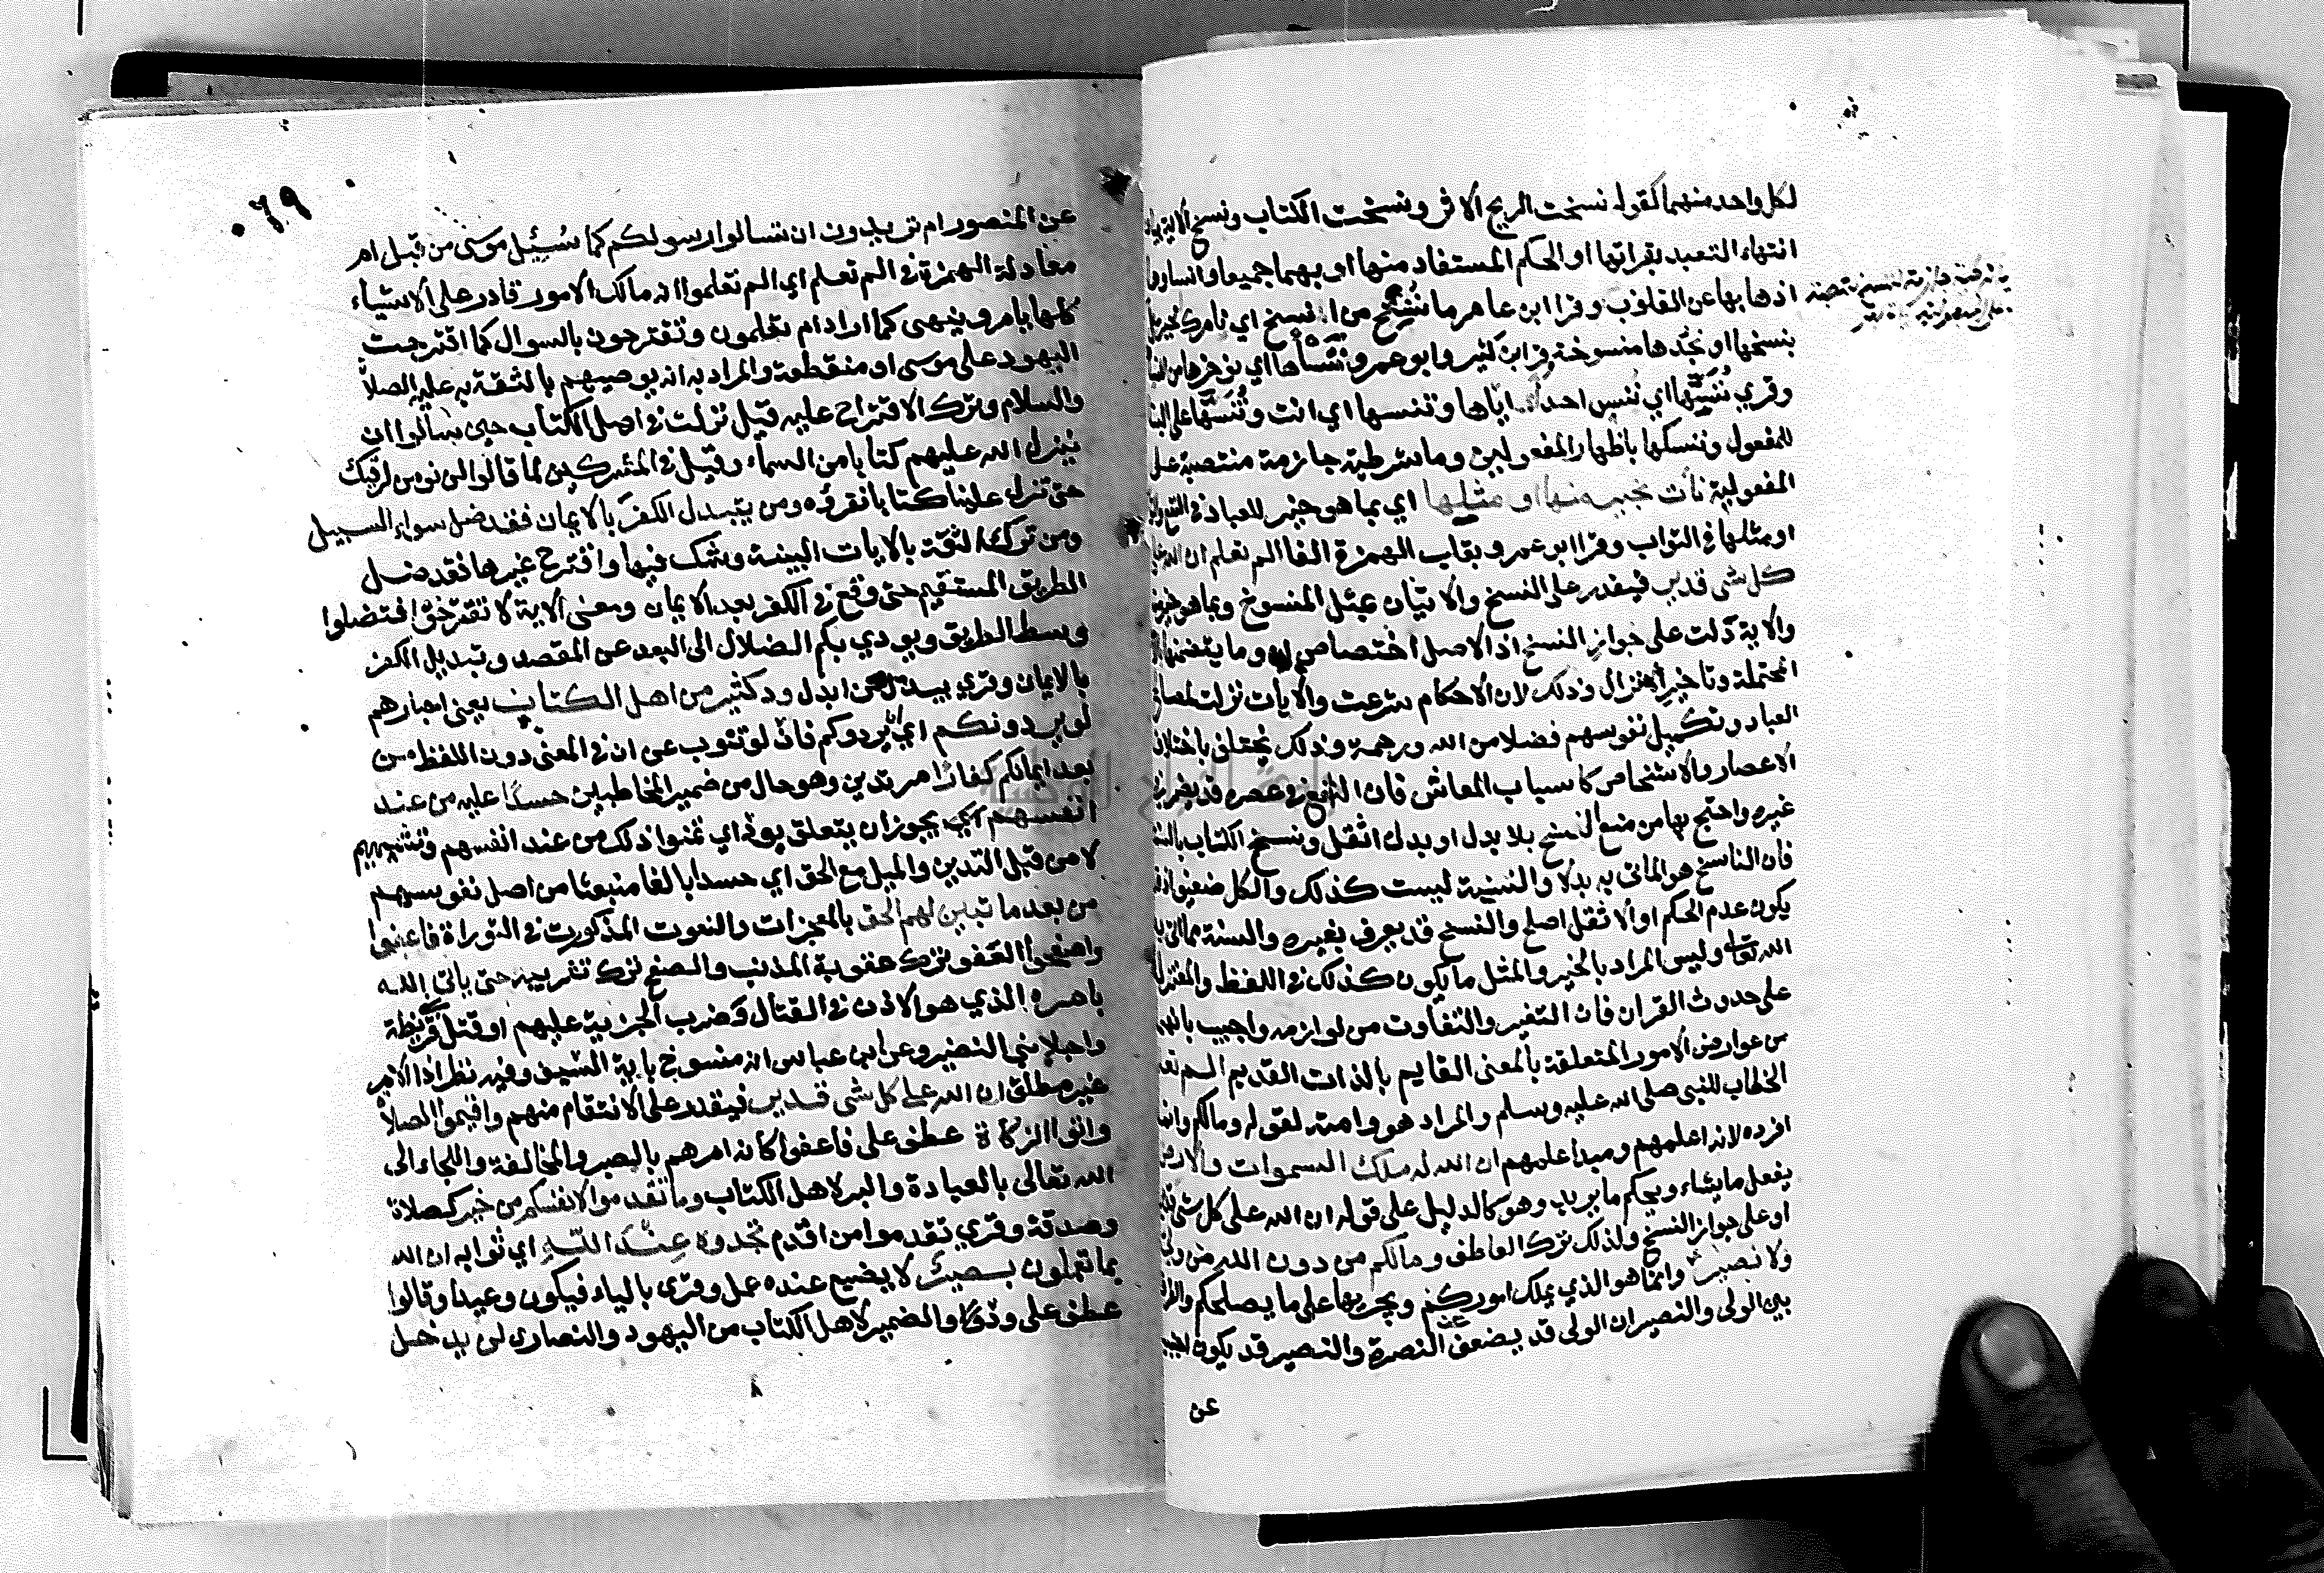 لكل واحد منهما كقولك نسخت الريح الاثر ونسخت الكتاب ونسخ الاية بيان
انتهاء التعبد بقراتها او الحكم المستفاد منها او بهما جميعا وانساوها
اذهابها عن القلوب وقرا ابن عامر ما نُنْسِخ من انسخ اي نامرك او جبريل
بنسخها او نجدها منسوخة وابن كثير وابو عمرو ننسأها اي نوخرها من النسا
وقري نُنَسِّها اي ننس احدا اياها وتنسها اي انت وتُنسَها على البنا
للمفعول وننسكها باظهار المفعولين وما شرطية جازمة منتصبة على
المفعولية نأت بخير منها او مثلها اي بما هو خير للعباد في النفع والثواب
او مثلها في الثواب وقرا ابو عمرو بقلب الهمزة الفا الم تعلم ان الله على
كل شي قدير فيقدر على النسخ والاتيان بمثل المنسوخ وبما هو خير منه
والاية دلت على جواز النسخ اذ الاصل اختصاص ان وما يتضمنها بالامور
المحتملة وتاخير انزال وذلك لان الاحكام شرعت والايات نزلت لمصالح
العباد وتكميل نفوسهم فضلا من الله ورحمة وذلك يختلف باختلاف
الاعصار والاشخاص كاسباب المعاش فان النافع في عصره قد يضر في
غيره واحتج بها من منع النسخ بلا بدل او بدل اثقل ونسخ الكتاب بالسنة
فان الناسخ هو الماتى به بدلا والسنة ليست كذلك والكل ضعيف اذ قد
يكون عدم الحكم او الاثقل اصلح والنسخ قد يعرف بغيره والسنة مما اتى به
الله تعالى وليس المراد بالخير والمثل ما يكون كذلك في اللفظ والمعتزلة
على حدوث القران فان التغير والتفاوت من لوازمه واجيب بانهما
من عوارض الامور المتعلقة بالمعنى القايم بالذات القديم الم تعلم
الخطاب للنبي صلى الله عليه وسلم والمراد هو وامته لقوله ومالكم وانما
افرده لانه اعلمهم ومبدا علمهم ان الله له ملك السموات والارض
يفعل ما يشاء ويحكم ما يريد وهو كالدليل على قوله ان الله على كل شي قدير
او على جواز النسخ ولذلك ترك العاطف ومالكم من دون الله من ولي
ولا نصير وانما هو الذي يملك اموركم ويجريها على ما يصلحكم والفرق
بين الولي والنصير ان الولي قد يضعف عن النصرة والنصير قد يكون اجنبيا
عن
عن المنصور ام تريدون ان تسالوا رسولكم كما سُئِيل موسى من قبل ام
معادلة الهمزة في الم تعلم اي الم تعلموا انه مالك الامور قادر على الاشياء
كلها يامر وينهى كما اراد ام تعلمون وتقترحون بالسوال كما اقترحت
اليهود على موسى او منقطعة والمراد به ان يوصيهم بالثقة به عليه الصلاة
والسلام وترك الاقتراح عليه قيل نزلت في اهل الكتاب حين سالوا ان
ينزل الله عليهم كتابا من السماء وقيل في المشركين لما قالوا لن نومن لرقيك
حتى تنزل علينا كتابا نقرؤه ومن يتبدل الكفر بالايمان فقد ضل سواء السبيل
ومن ترك الثقة بالايات البينة وشك فيها واقترح غيرها فقد ضل
الطريق المستقيم حتى وقع في الكفر بعد الايمان ومعنى الاية لا تقترحوا فتضلوا
وسط الطريق ويودي بكم الضلال الى البعد عن المقصد وتبديل الكفر
بالايمان وقري يبدل من ابدل ود كثير من اهل الكتاب يعنى احبارهم
لو يردونكم اي ان يردوكم فان لو تنوب عن ان في المعنى دون اللفظ من
بعد ايمانكم كفارا مرتدين وهو حال من ضمير المخاطبين حسدا عليه من عند
انفسهم يجوز ان يتعلق بود اي تمنوا ذلك من عند انفسهم وتشهيهم
لا من قبل التدين والميل مع الحق اي حسدا بالغا منبعثا من اصل نفوسهم
من بعد ما تبين لهم الحق بالمعجزات والنعوت المذكورت في التوراة فاعفوا
واصفحوا العفو ترك عقوبة المذنب والصفح ترك تثريبه حتى ياتي الله
بامره الذي هو الاذن في القتال وضرب الجزية عليهم او قتل قريظة
واجلا بني النضير وعن ابن عباس انه منسوخ باية السيف وفيه نظر اذ الامر
غير مطلق ان الله على كل شى قدير فيقدر على الانتقام منهم واقيموا الصلاة
واتوا الزكاة عطف على فاعفوا كانه امرهم بالصبر والمخالفة واللجاء الى
الله تعالى بالعبادة والبر لاهل الكتاب وما تقدموا لانفسكم من خير كصلاة
وصدقة وقري تقدموا من اقدم تجدوه عند الله اي ثوابه ان الله
بما تعملون بصير لا يضيع عنده عمل وقرى بالياء فيكون وعيدا وقالوا
عطف على ود والضمير لاهل الكتاب من اليهود والنصارى لن يدخل